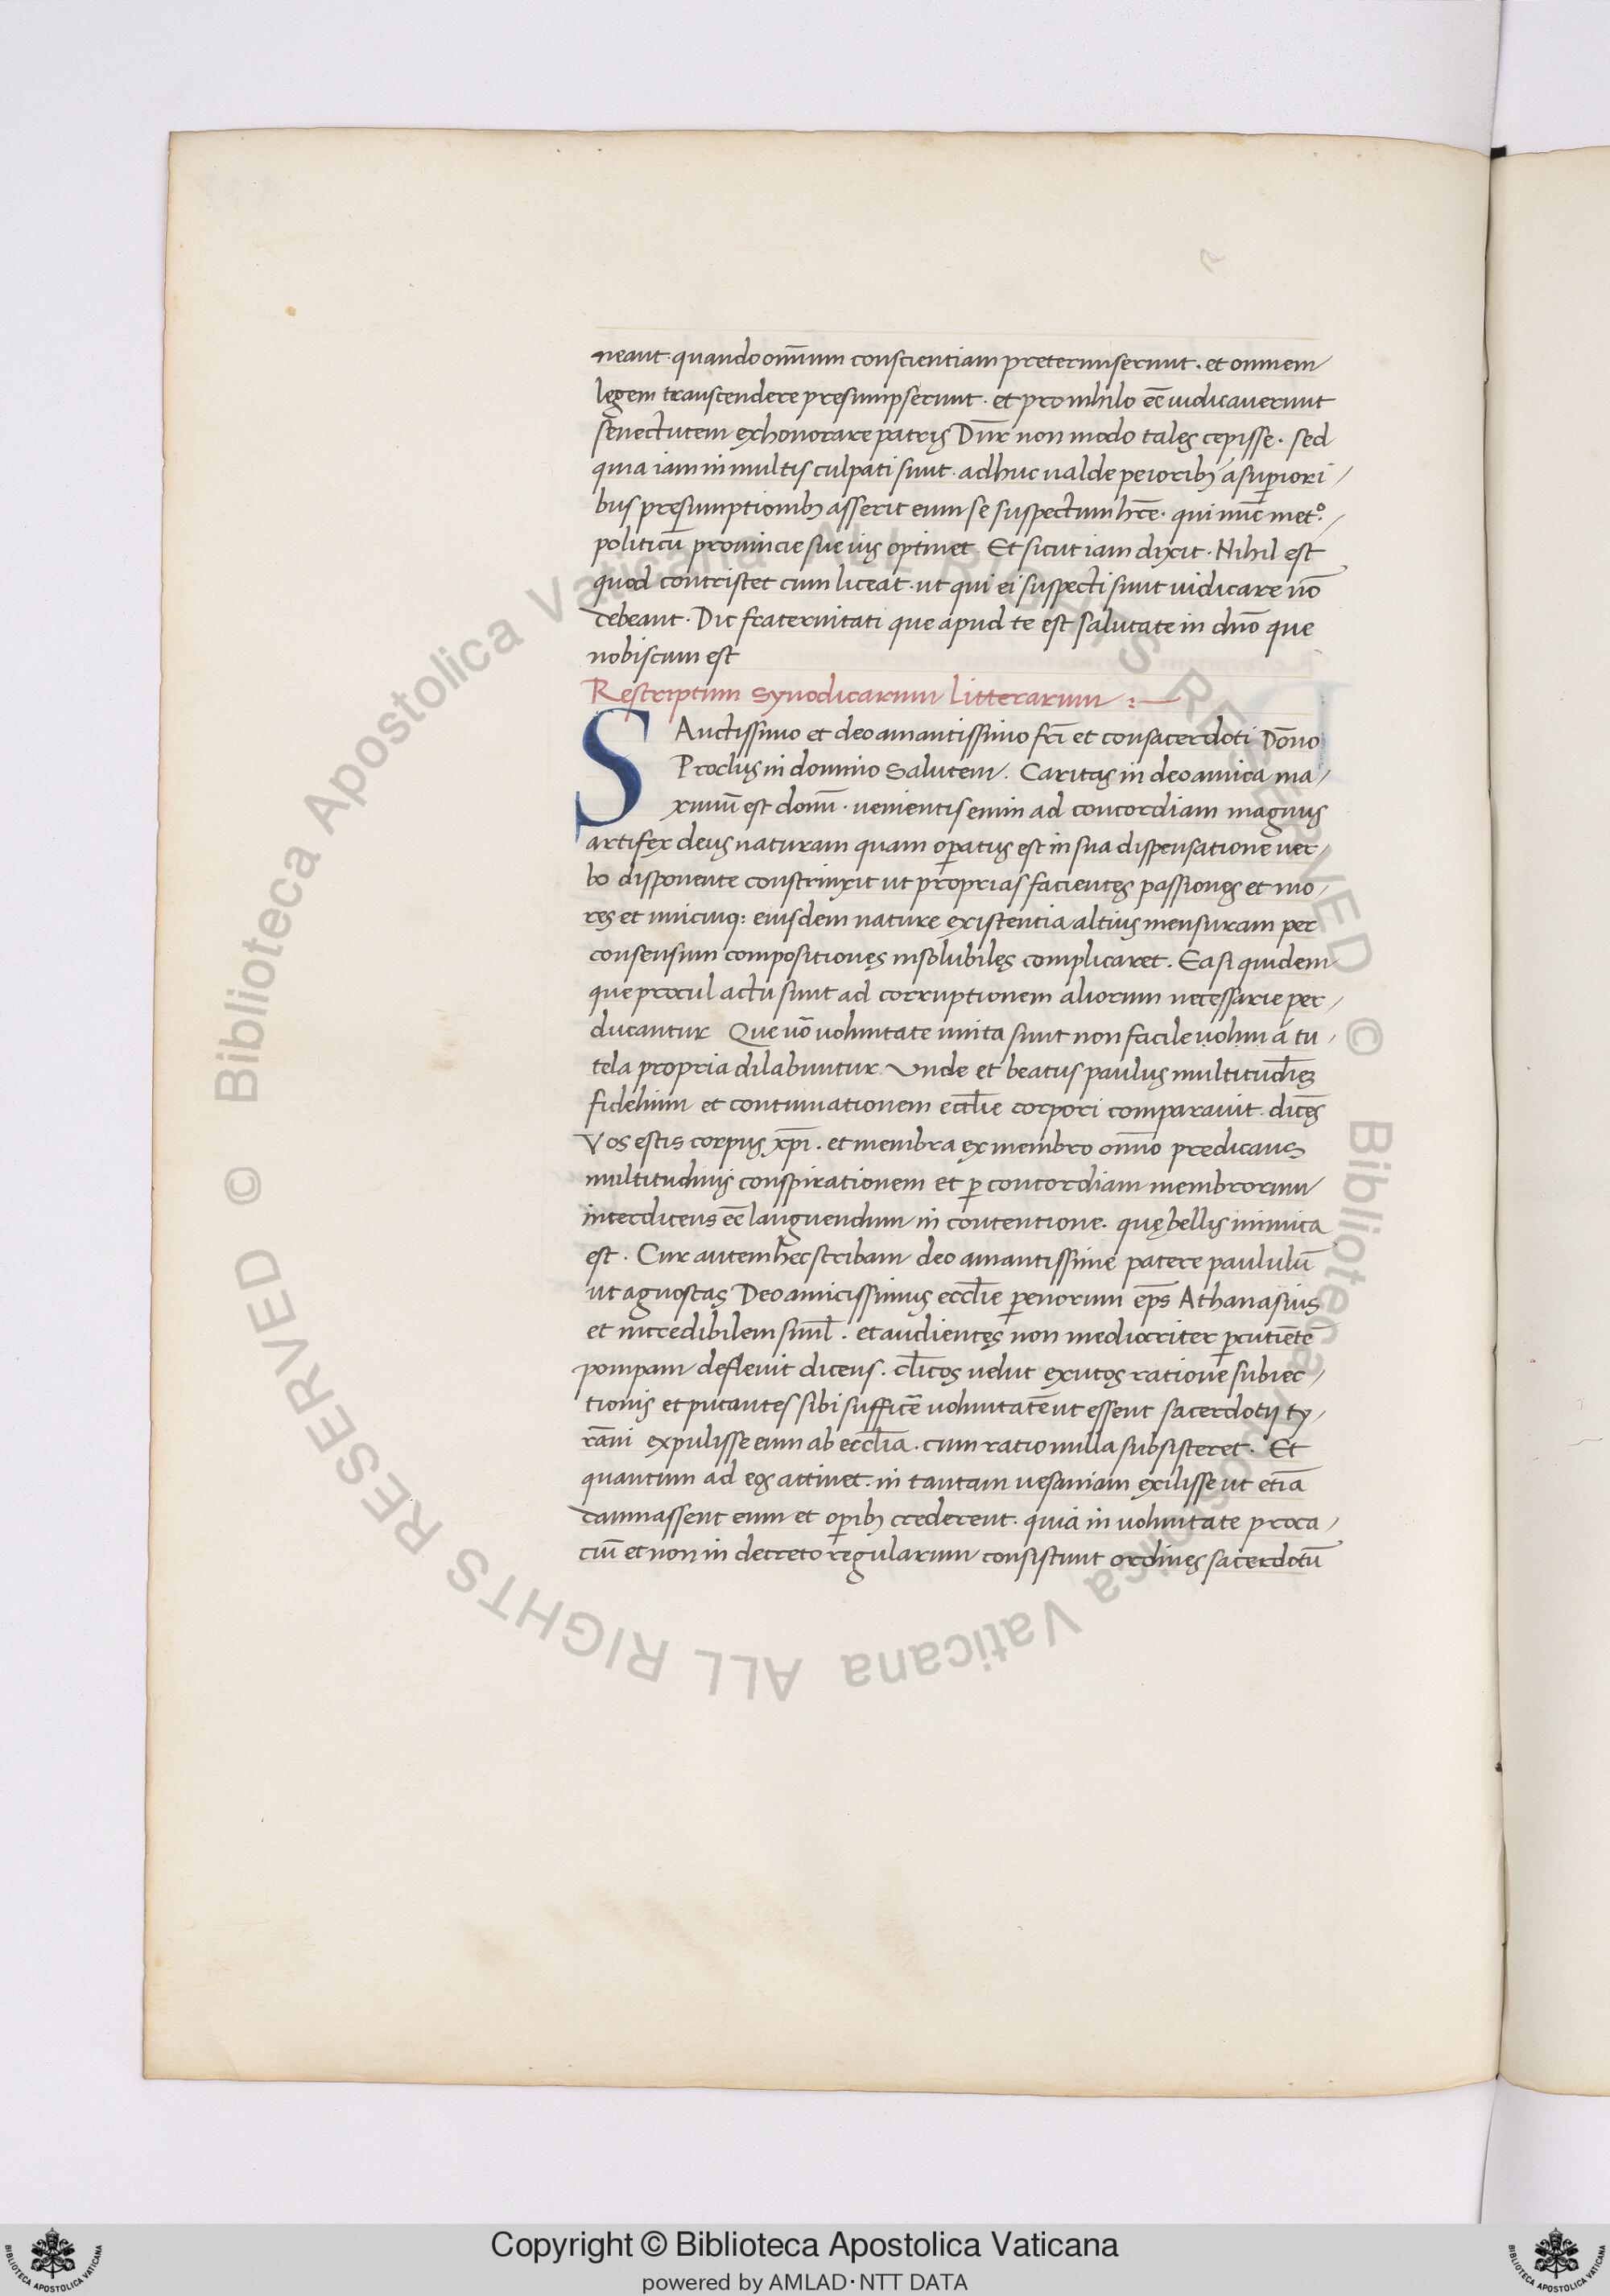 neant. quando om̅ium conscientiam preterimiserunt. et omnem
legem transcendere presumpserunt. et pro nihilo ee̅ iudicaverunt
senectutem exhonorare patris Dn̅r non modo tales cepisse. sed
quia iam in multis culpati sunt. adhuc valde peioribꝫ a sup̅iori
bus presumptionibꝫ asserit eum se suspectum hr̅e. qui nu̅c met°.
politicu̅ provincie sue ius optinet. Et sicut iam dixit. Nihil est
quod contristet cum liceat. ut qui ei suspecti sunt iudicare no̅
debeant. Dic fraternitati que apud te est salutate in dn̅o que
nobiscum est
Rescriptum Synodicarum Litterarum :—
SAnctissimo et deo amantissimo fr̅i et consacerdoti Do̅no
Proclus in domino Salutem. Caritas in deo amica ma/
ximu̅ est donu̅. venientis enim ad concordiam magnus
artifex deus naturam quam op̅atus est in sua dispensatione ver/
bo disponente constrinxit ut proprias facientes passiones et mo/
res et unicuiq: eiusdem nature existentia altius mensuram per
consensum compositiones insolubiles complicaret. Ea si quidem
que procul actu sunt ad corruptionem aliorum necessarie per/
ducantur Que vo̅ voluntate unita sunt non facile volun a tu/
tela propria dilabuntur. Unde et beatus paulus multitudi̅es
fidelium et continuationem eccl̅ie corpori comparavit. dice̅s
Vos estis corpus xp̅i. et membra ex membro om̅io predicans
multitudinis conspirationem et p̲ concordiam membrorum
interdicens ee̅ languendum in contentione. quę bellis inimica
est. Cur autem hec scribam deo amantissime patere paululu̅
ut agnoscas Deo amicissimus eccl̅ie p̲enorum ep̅s Athanasius
et incredibilem siml̅. et audientes non mediocriter p̲cutie̅te̅
pompam deflevit dicens. cl̅icos velut exutos ratione subiec/
tionis et putantes sibi suffice̅ voluntate̅ ut essent sacerdotij ty/
ra̅ni expulisse eum ab eccl̅ia. cum ratio nulla subsisteret. Et
quantum ad eos attinet. in tantam vesaniam exilisse ut etia̅
damnassent eum et op̲ibꝫ crederent. quia in voluntate proca/
ciu̅ et non in decreto regularum consistunt ordines sacerdotu̅
© Biblioteca Apostolica Vaticana ALL RIGHTS RESERVED © Biblioteca Apostolica Vaticana ALL RIGHTS RESERVED
Copyright © Biblioteca Apostolica Vaticana
powered by AMLAD·NTT DATA
BIBLIOTECA APOSTOLICA VATICANA
BIBLIOTECA APOSTOLICA VATICANA